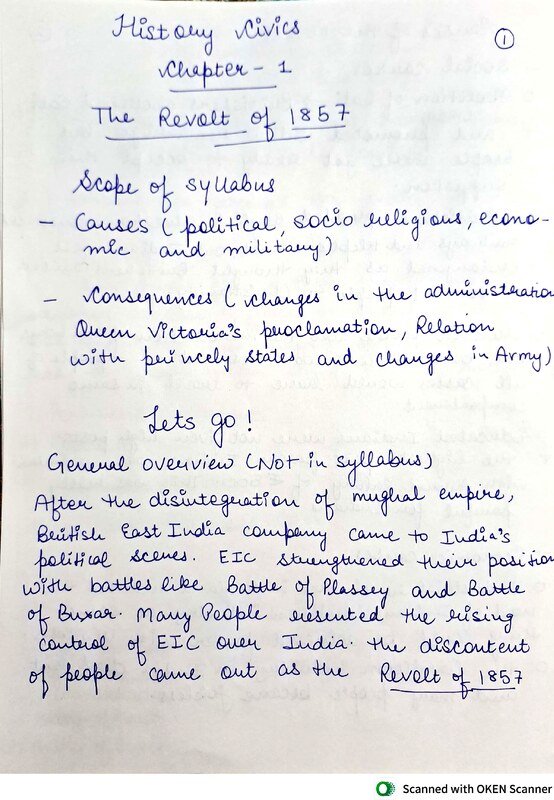 History Civics
1
Chapter - 1
The Revolt of 1857
Scope of syllabus
- Causes (political, socio religious, econo-
mic and military)
- Consequences (changes in the administration
Queen Victoria's proclamation, Relation
with princely states and changes in Army)
Lets go!
General overview (Not in syllabus)
After the disintegration of mughal empire,
British East India company came to India's
political scenes. EIC strengthened their position
with battles like Battle of Plassey and Battle
of Buxar. Many People resented the rising
control of EIC over India. the discontent
of people came out as the Revolt of 1857
Scanned with OKEN Scanner